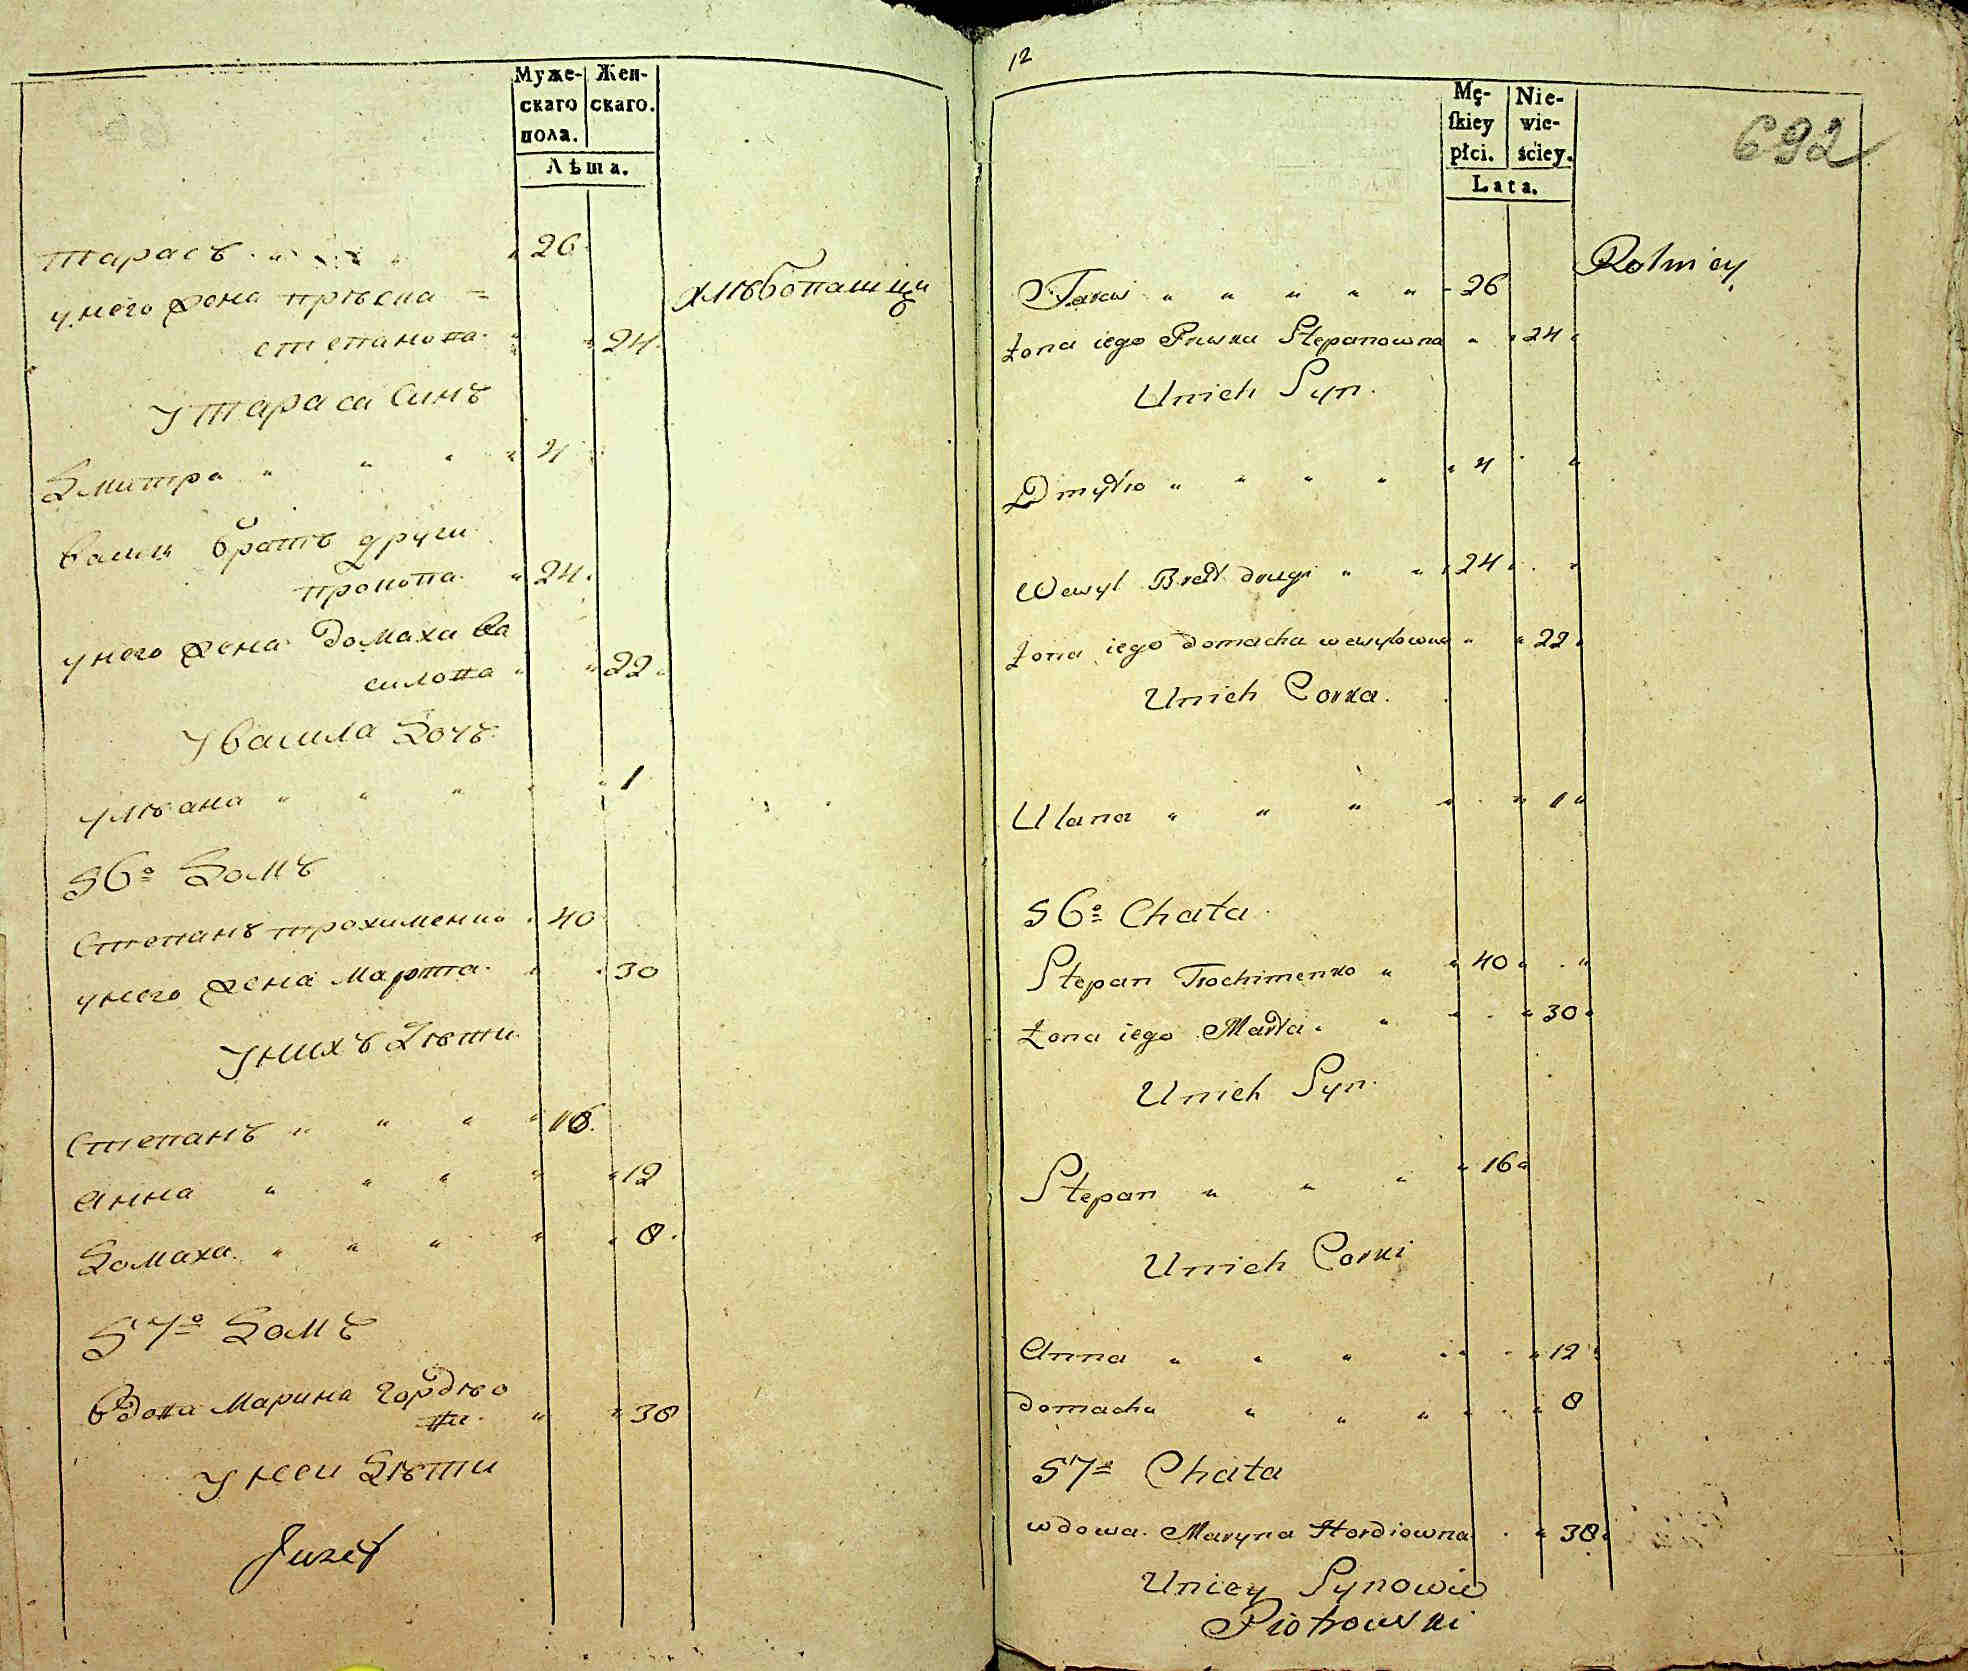 Муже-
скаго
пола.
Жен-
скаго.
Лѣта.
Тарасъ 26
у него жена Прѣска =
степанова 24
У Тараса Синъ
Дмитра 4
Васил братъ други
Прокопа 24
у него жена Домаха Ва
силова 22
У Васила Дочъ
Улѣана 1
хлѣбопашци
56º Домъ
Степанъ Трохименко 40
у него жена Марта 30
У нихъ Дѣти
Степанъ 16
Анна 12
Домаха 8
57º Домъ
Вдова Марина Гордѣо
ва 38
У неи Дѣти
Juzef
12
692
Mę-
skiey
płci.
Nie-
wie-
ściey.
Lata.
Taras 26
Rolnicy
Żona iego Pryska Stepanowna 24
U nich Syn
Dmytro 4
Wasyl Brat drugi 24
Żona iego domacha wasylowna 22
U nich Corka
Ulana 1
56º Chata
Stepan Trochimenko 40
Żona iego Marta 30
U nich Syn
Stepan 16
U nich Corki
Anna 12
domacha 8
57ª Chata
wdowa Maryna Hordiowna 38
U niey Synowie
Piotrowski